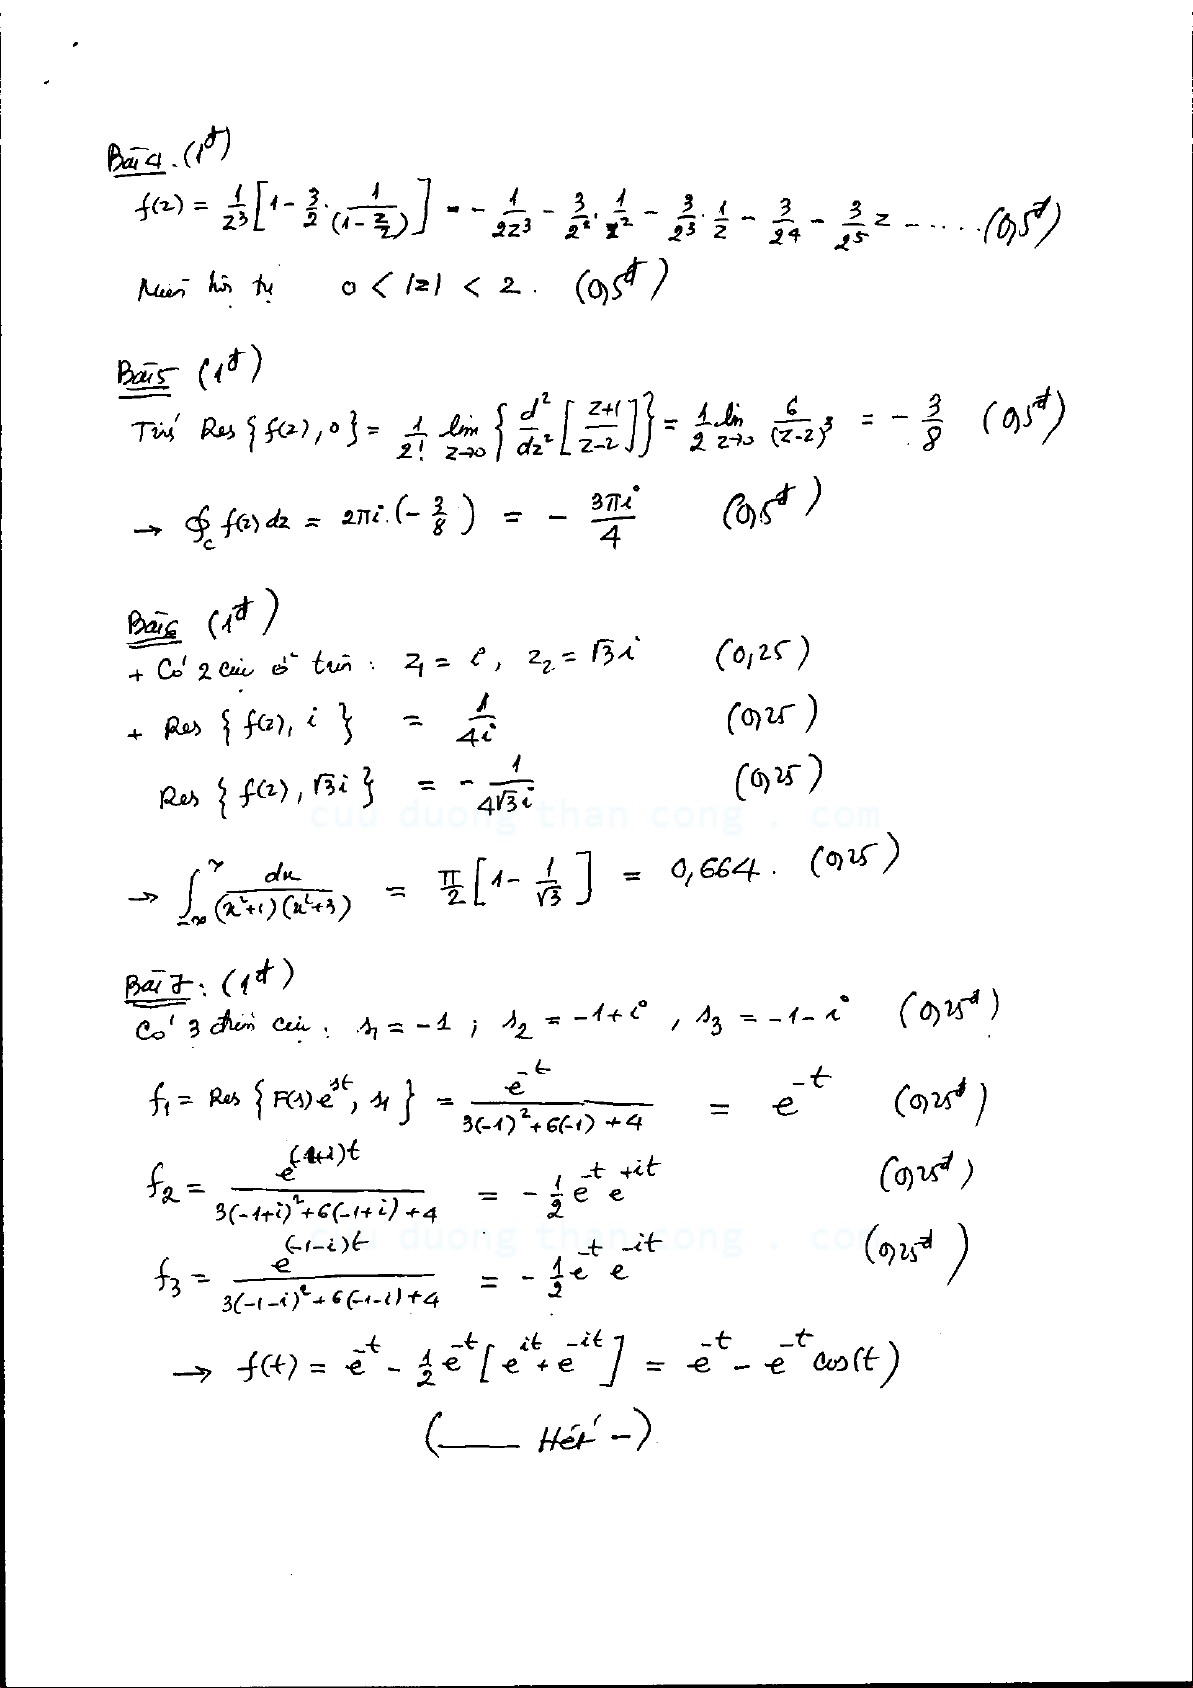 Bài 4. (1đ)
f(z) = 1/z³ [1 - 3/2 · 1/(1 - z/2)] = - 1/2z³ - 3/2² · 1/z² - 3/2³ · 1/z - 3/2⁴ - 3/2⁵ z - ..... (0,5đ)
Miền hội tụ 0 < |z| < 2. (0,5đ)
Bài 5 (1đ)
Tính Res {f(z), 0} = 1/2! lim z→0 { d²/dz² [ z+1/z-2 ] } = 1/2 lim z→0 6/(z-2)³ = - 3/8 (0,5đ)
→ ∮c f(z) dz = 2πi.(- 3/8) = - 3πi/4 (0,5đ)
Bài 6 (1đ)
+ Có 2 cực ở trên : z₁ = i, z₂ = √3 i (0,25)
+ Res { f(z), i } = 1/4i (0,25)
Res { f(z), √3 i } = - 1/4√3 i (0,25)
cuu duong than cong . com
→ ∫-∞^∞ dx/(x²+1)(x²+3) = π/2 [1 - 1/√3] = 0,664. (0,25)
Bài 7 : (1đ)
Có 3 đơn cực : s₁ = -1 ; s₂ = -1+i , s₃ = -1-i (0,25đ)
f₁ = Res { F(s)e^st, s₁ } = e^-t/3(-1)²+6(-1)+4 = e^-t (0,25đ)
f₂ = e^(-1+i)t/3(-1+i)²+6(-1+i)+4 = - 1/2 e^-t e^+it (0,25đ)
cuu duong than cong . com
f₃ = e^(-1-i)t/3(-1-i)²+6(-1-i)+4 = - 1/2 e^-t e^-it (0,25đ)
→ f(t) = e^-t - 1/2 e^-t [e^it + e^-it] = e^-t - e^-t cos(t)
(—— Hết -)